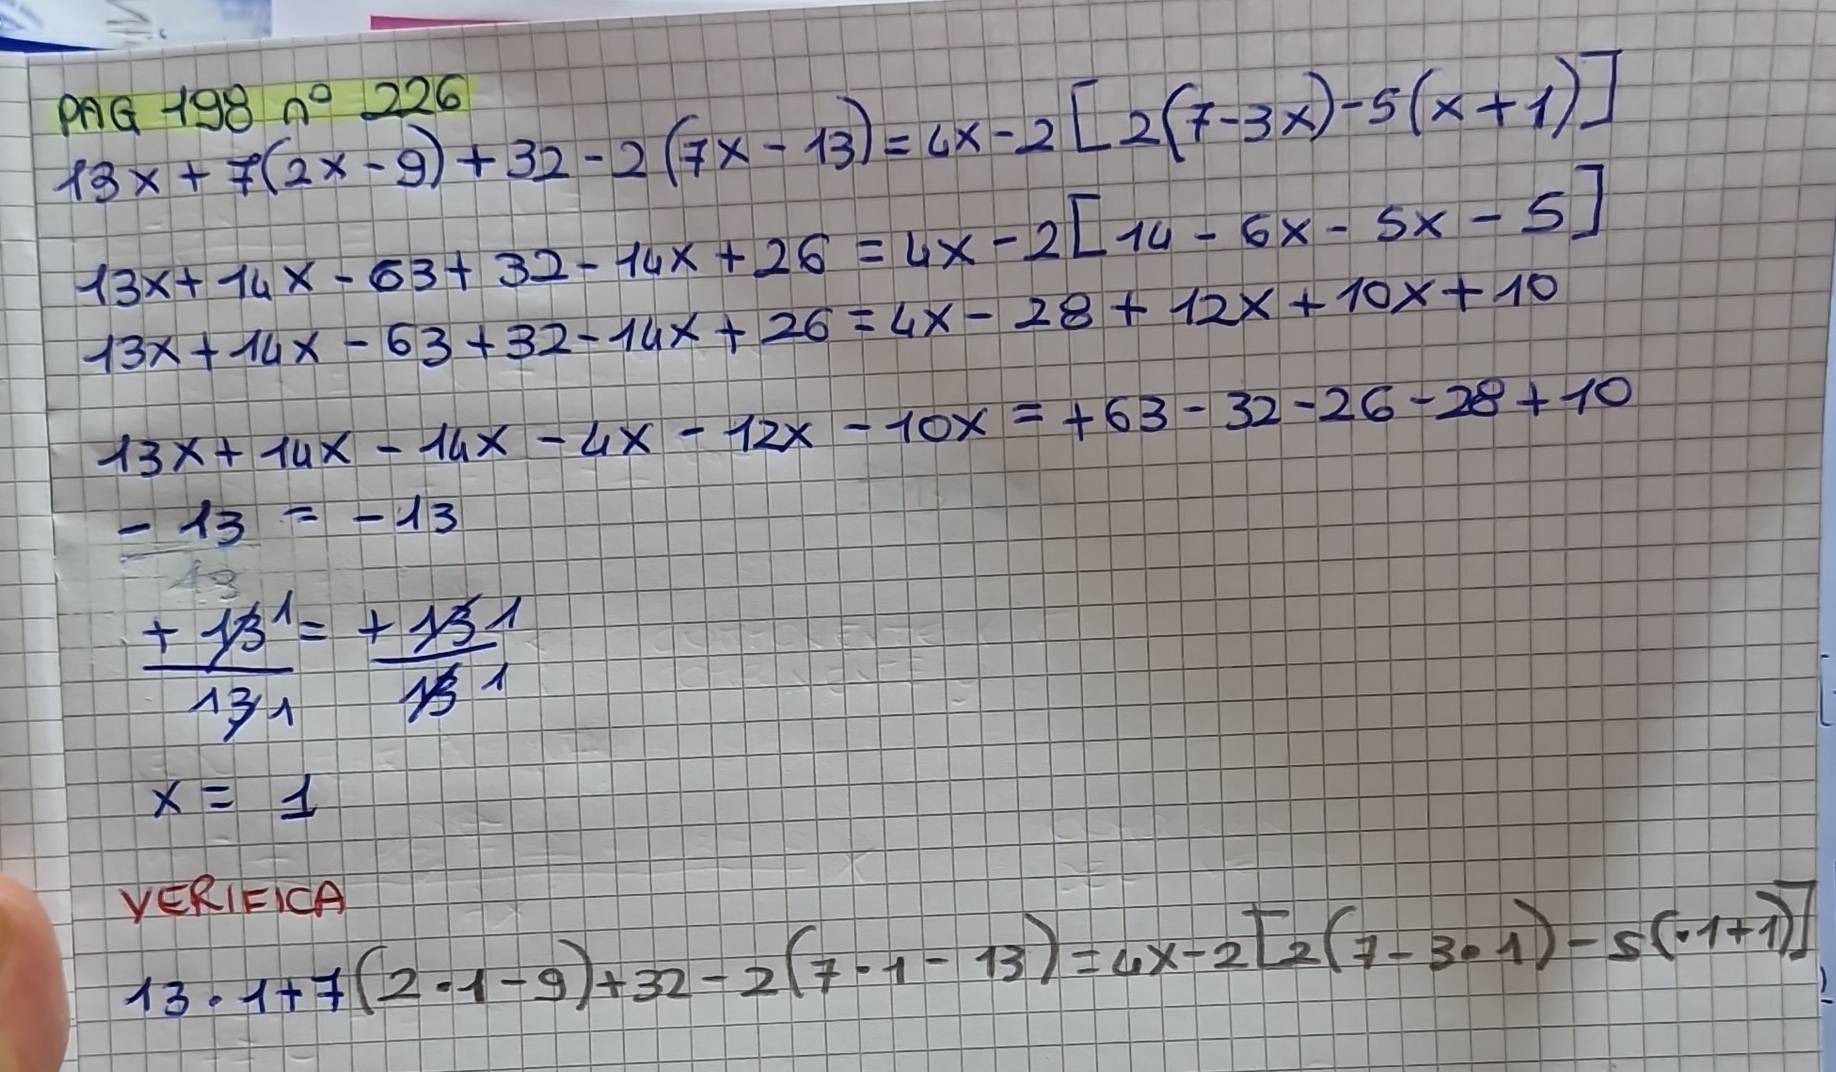 PAG 198 n° 226
13x + 7(2x - 9) + 32 - 2(7x - 13) = 4x - 2[2(7 - 3x) - 5(x + 1)]
13x + 14x - 63 + 32 - 14x + 26 = 4x - 2[14 - 6x - 5x - 5]
13x + 14x - 63 + 32 - 14x + 26 = 4x - 28 + 12x + 10x + 10
13x + 14x - 14x - 4x - 12x - 10x = + 63 - 32 - 26 - 28 + 10
- 13 = - 13
13
+ 13 1 = + 13 1
13 1 13 1
x = 1
VERIFICA
13 · 1 + 7(2 · 1 - 9) + 32 - 2(7 · 1 - 13) = 4x - 2[2(7 - 3 · 1) - 5(· 1 + 1)]